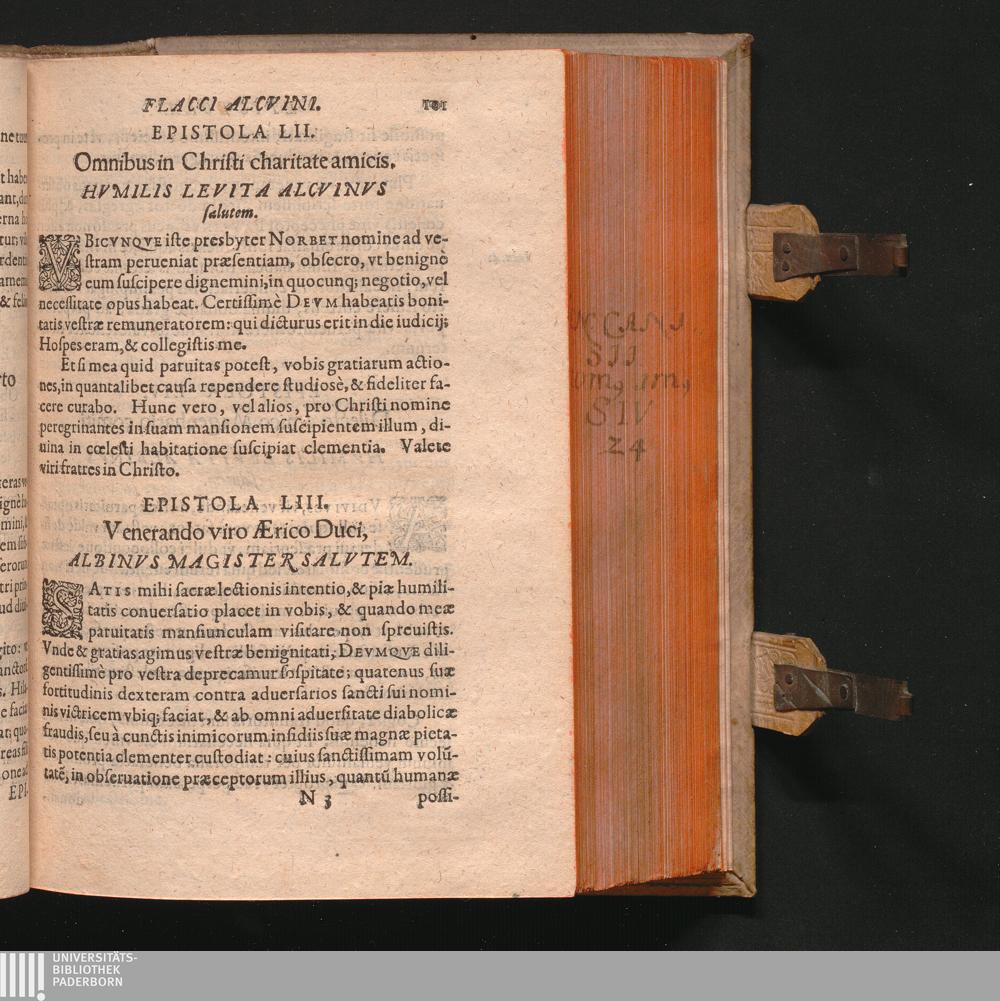 FLACCI ALCVINI. 101
EPISTOLA LII.
Omnibus in Christi charitate amicis.
HVMILIS LEVITA ALCVINVS
salutem.
VBICVNQVE iste presbyter NORBET nomine ad ve-
stram perueniat præsentiam, obsecro, vt benignè
eum suscipere dignemini, in quocunq; negotio, vel
necessitate opus habeat. Certissimè DEVM habeatis boni-
tatis vestræ remuneratorem: qui dicturus erit in die iudicij;
Hospes eram, & collegistis me.
Et si mea quid paruitas potest, vobis gratiarum actio-
nes, in quantalibet causa rependere studiosè, & fideliter fa-
cere curabo. Hunc vero, vel alios, pro Christi nomine
peregrinantes in suam mansionem suscipientem illum, di-
uina in cœlesti habitatione suscipiat clementia. Valete
viri fratres in Christo.
EPISTOLA LIII.
Venerando viro Ærico Duci,
ALBINVS MAGISTER SALVTEM.
SATIS mihi sacræ lectionis intentio, & piæ humili-
tatis conuersatio placet in vobis, & quando meæ
paruitatis mansiunculam visitare non spreuistis.
Vnde & gratias agimus vestræ benignitati, DEVMQVE dili-
gentissimè pro vestra deprecamur sospitate; quatenus suæ
fortitudinis dexteram contra aduersarios sancti sui nomi-
nis victricem vbiq; faciat, & ab omni aduersitate diabolicæ
fraudis, seu à cunctis inimicorum insidiis suæ magnæ pieta-
tis potentia clementer custodiat: cuius sanctissimam volū-
tatē, in obseruatione præceptorum illius, quantū humanæ
N 3 possi-
SIV
24
UNIVERSITÄTS-
BIBLIOTHEK
PADERBORN